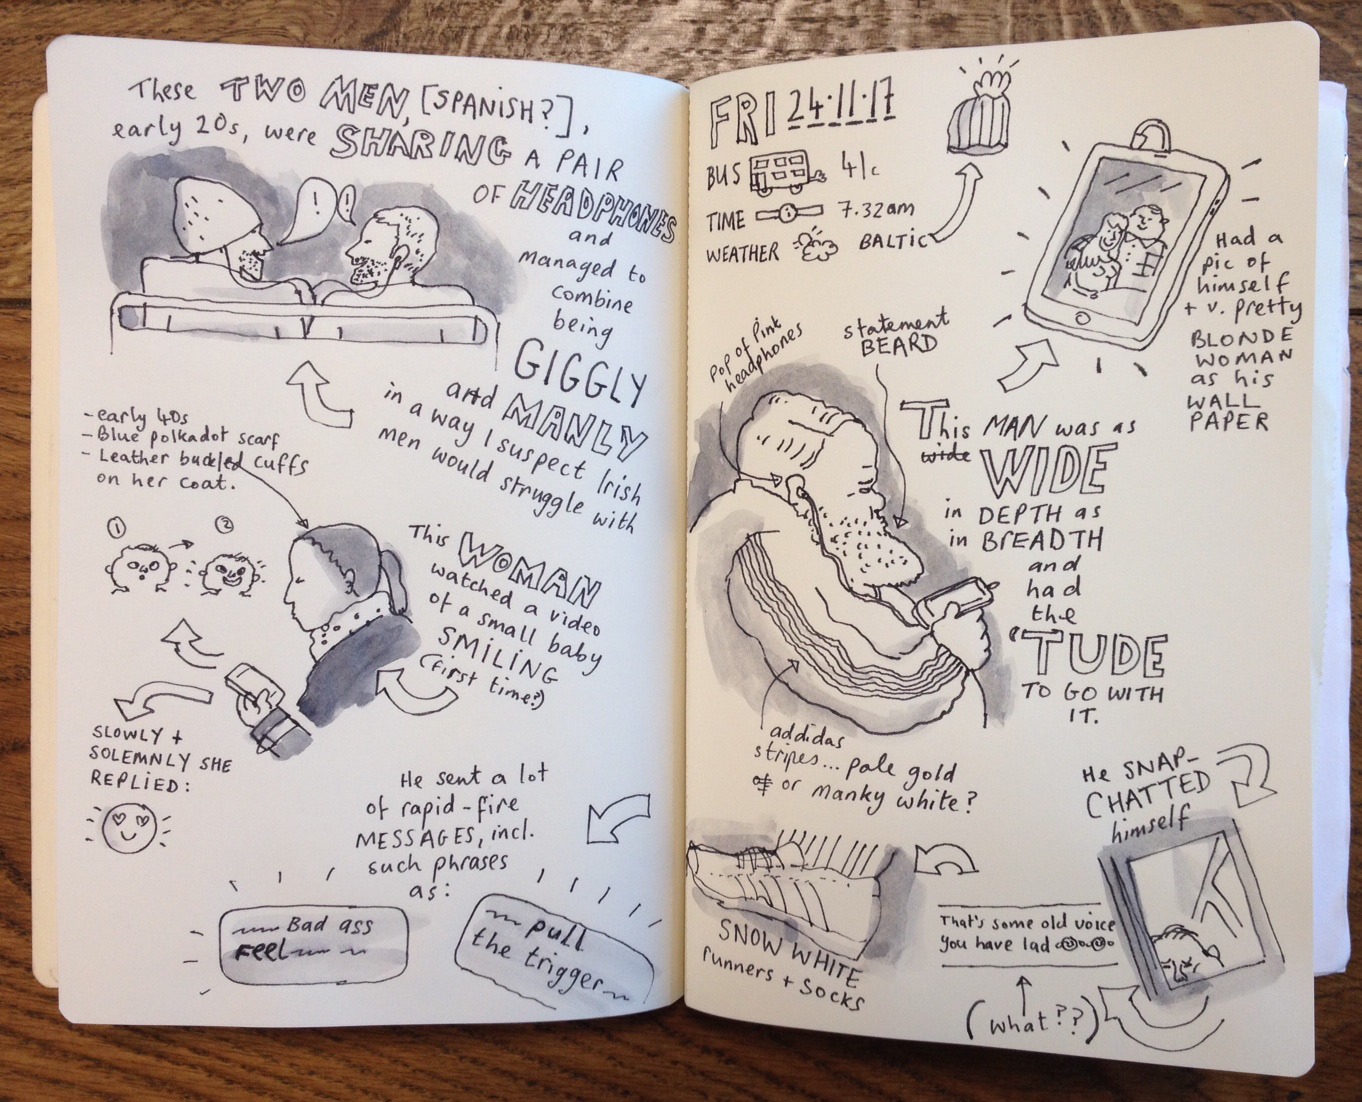 These TWO MEN, [SPANISH?],
early 20s, were SHARING A PAIR
OF HEADPHONES
and
managed to
combine
being
GIGGLY
and MANLY
in a way I suspect Irish
men would struggle with
! !
- early 40s
- Blue polkadot scarf
- Leather buckled cuffs
on her coat.
1 2
This WOMAN
watched a video
of a small baby
SMILING
(first time?)
SLOWLY +
SOLEMNLY SHE
REPLIED:
He sent a lot
of rapid-fire
MESSAGES, incl.
such phrases
as:
Bad ass
FEEL
pull
the trigger
FRI 24.11.17
BUS 41c
TIME 7.32am
WEATHER BALTIC
Had a
pic of
himself
+ v. pretty
BLONDE
WOMAN
as his
WALL
PAPER
Pop of Pink
headphones
statement
BEARD
This MAN was as
wide WIDE
in DEPTH as
in BREADTH
and
had
the
'TUDE
TO GO WITH
IT.
addidas
stripes... pale gold
or manky white?
He SNAP-
CHATTED
himself
SNOW WHITE
runners + socks
That's some old voice
you have lad
(what??)